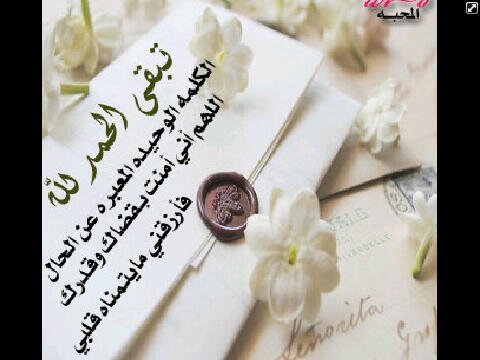 المحبه
تبقى الحمد لله
الكلمه الوحيده المعبره عن الحال
اللهم أني أمنت بقضاك وقدرك
فأرزقني مايتمناه قلبي
Señorita